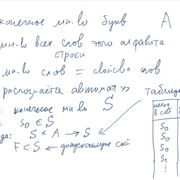 конечное мн-во букв A
мн-во всех слов этого алфавита
строки
мн-во слов = свойва слов
распознаёт автомат» таблица
: конечное мн-во S
S₀ ∈ S
да: S × A → S
F ⊂ S ← допускающие сост
в себе
S₀
S₀
S₀
S₀